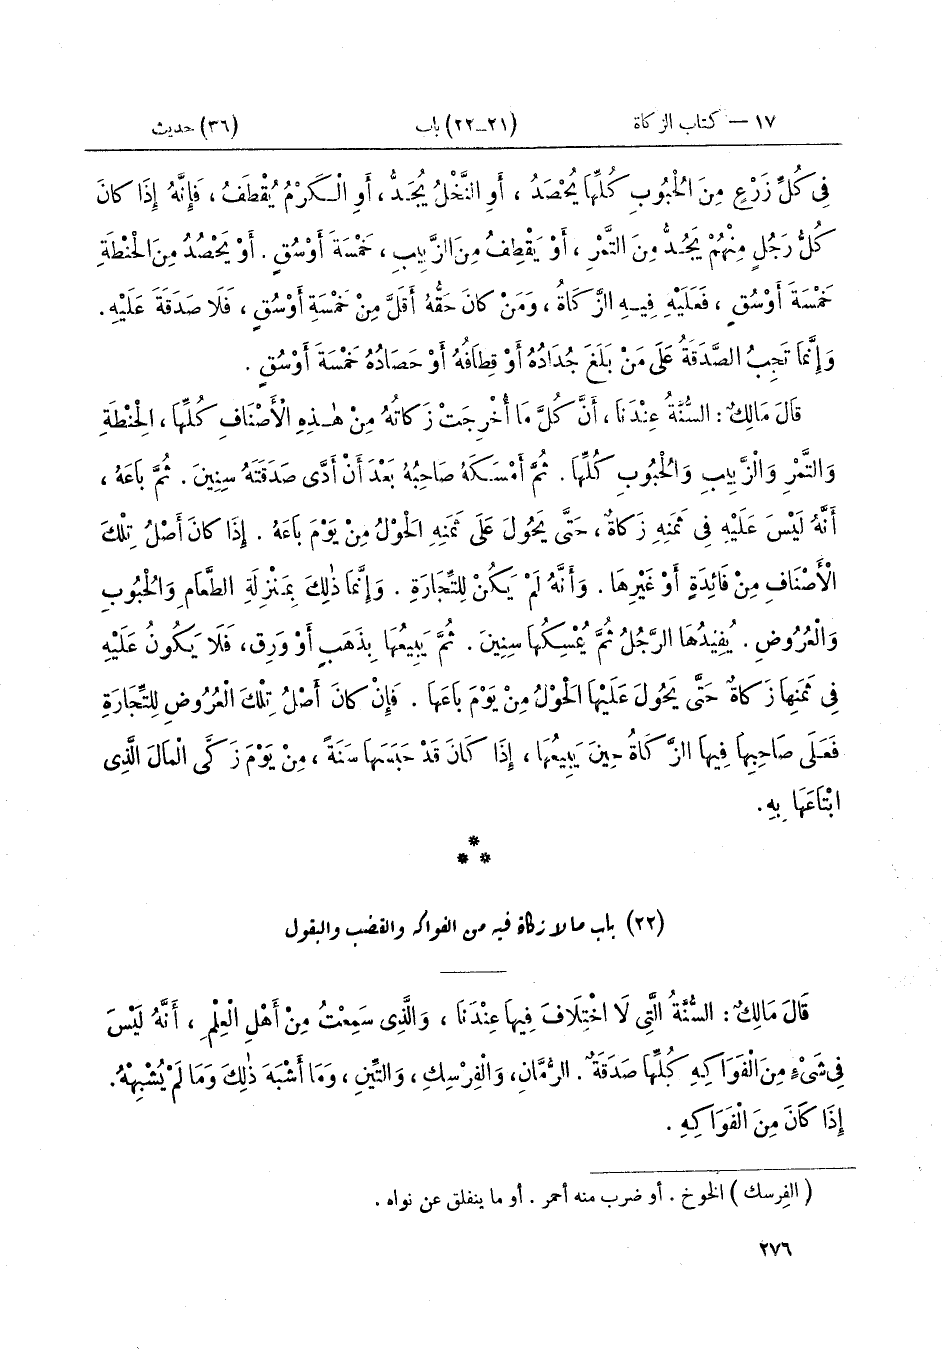 ١٧ – كتاب الزكاة (٢١–٢٢) باب (٣٦) حديث
فِى كُلِّ زَرْعٍ مِنَ الْحُبُوبِ كُلِّهَا يُحْصَدُ ، أَوِ النَّخْلُ يُجَدُّ ، أَوِ الْكَرْمُ يُقْطَفُ ، فَإِنَّهُ إِذَا كَانَ
كُلُّ رَجُلٍ مِنْهُمْ يَجُدُّ مِنَ التَّمْرِ ، أَوْ يَقْطِفُ مِنَ الزَّبِيبِ ، خَمْسَةَ أَوْسُقٍ . أَوْ يَحْصُدُ مِنَ الْحِنْطَةِ
خَمْسَةَ أَوْسُقٍ ، فَعَلَيْهِ فِيهِ الزَّكَاةُ ، وَمَنْ كَانَ حَقُّهُ أَقَلَّ مِنْ خَمْسَةِ أَوْسُقٍ ، فَلَا صَدَقَةَ عَلَيْهِ .
وَإِنَّمَا تَجِبُ الصَّدَقَةُ عَلَى مَنْ بَلَغَ جُدَادُهُ أَوْ قِطَافُهُ أَوْ حَصَادُهُ خَمْسَةَ أَوْسُقٍ .
قَالَ مَالِكٌ : السُّنَّةُ عِنْدَنَا ، أَنَّ كُلَّ مَا أُخْرِجَتْ زَكَاتُهُ مِنْ هٰذِهِ الْأَصْنَافِ كُلِّهَا ، الْحِنْطَةِ
وَالتَّمْرِ وَالزَّبِيبِ وَالْحُبُوبِ كُلِّهَا . ثُمَّ أَمْسَكَهُ صَاحِبُهُ بَعْدَ أَنْ أَدَّى صَدَقَتَهُ سِنِينَ . ثُمَّ بَاعَهُ ،
أَنَّهُ لَيْسَ عَلَيْهِ فِى ثَمَنِهِ زَكَاةٌ ، حَتَّى يَحُولَ عَلَى ثَمَنِهِ الْحَوْلُ مِنْ يَوْمَ بَاعَهُ . إِذَا كَانَ أَصْلُ تِلْكَ
الْأَصْنَافِ مِنْ فَائِدَةٍ أَوْ غَيْرِهَا . وَأَنَّهُ لَمْ يَكُنْ لِلتِّجَارَةِ . وَإِنَّمَا ذٰلِكَ بِمَنْزِلَةِ الطَّعَامِ وَالْحُبُوبِ
وَالْعُرُوضِ . يُفِيدُهَا الرَّجُلُ ثُمَّ يُمْسِكُهَا سِنِينَ . ثُمَّ يَبِيعُهَا بِذَهَبٍ أَوْ وَرِقٍ ، فَلَا يَكُونُ عَلَيْهِ
فِى ثَمَنِهَا زَكَاةٌ حَتَّى يَحُولَ عَلَيْهَا الْحَوْلُ مِنْ يَوْمَ بَاعَهَا . فَإِنْ كَانَ أَصْلُ تِلْكَ الْعُرُوضِ لِلتِّجَارَةِ
فَعَلَى صَاحِبِهَا فِيهَا الزَّكَاةُ حِينَ يَبِيعُهَا ، إِذَا كَانَ قَدْ حَبَسَهَا سَنَةً ، مِنْ يَوْمَ زَكَّى الْمَالَ الَّذِى
ابْتَاعَهَا بِهِ .
*
* *
(٢٢) باب مالا زكاة فيه من الفواكه والقضب والبقول
قَالَ مَالِكٌ : السُّنَّةُ الَّتِى لَا اخْتِلَافَ فِيهَا عِنْدَنَا ، وَالَّذِى سَمِعْتُ مِنْ أَهْلِ الْعِلْمِ ، أَنَّهُ لَيْسَ
فِى شَىْءٍ مِنَ الْفَوَاكِهِ كُلِّهَا صَدَقَةٌ . الرُّمَّانِ ، وَالْفِرْسِكِ ، وَالتِّينِ ، وَمَا أَشْبَهَ ذٰلِكَ وَمَا لَمْ يُشْبِهْهُ .
إِذَا كَانَ مِنَ الْفَوَاكِهِ .
( الفِرسك ) الخوخ . أو ضرب منه أحمر . أو ما ينفلق عن نواه .
٢٧٦